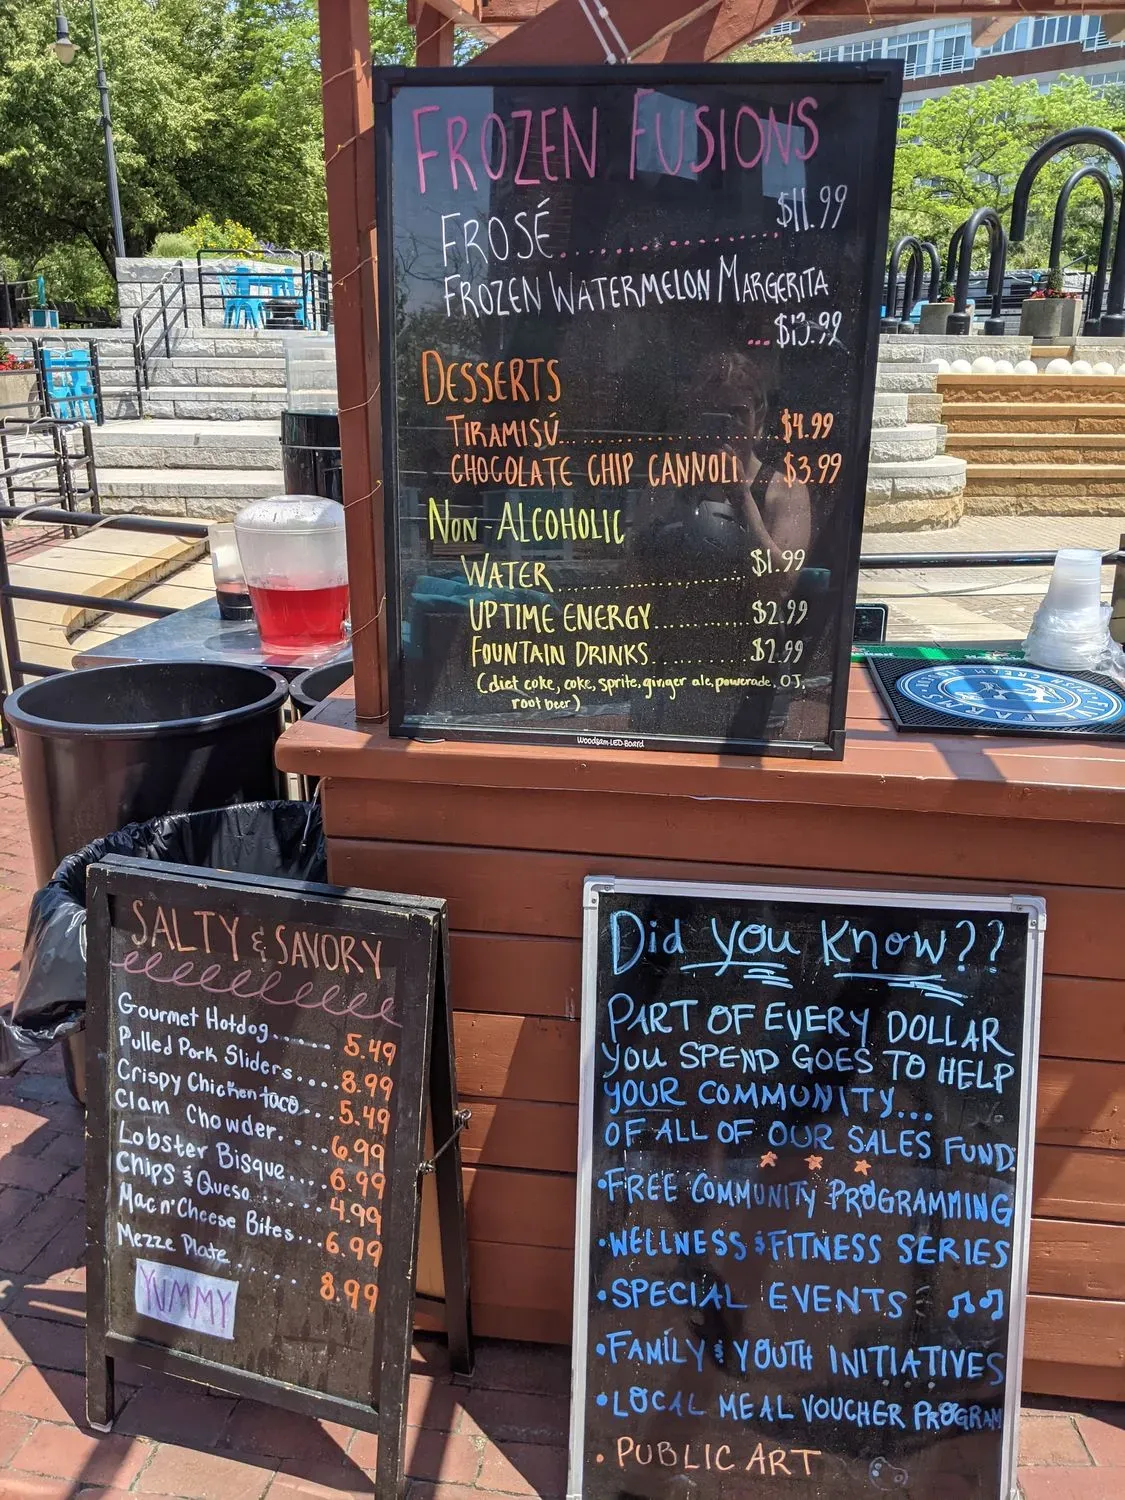 FROZEN FUSIONS
FROSÉ............... $11.99
FROZEN WATERMELON MARGERITA
... $13.99
DESSERTS
TIRAMISÚ..................... $4.99
CHOCOLATE CHIP CANNOLI..... $3.99
NON-ALCOHOLIC
WATER..................... $1.99
UPTIME ENERGY............ $2.99
FOUNTAIN DRINKS.......... $2.99
(diet coke, coke, sprite, ginger ale, powerade, OJ,
root beer)
Woodsam LED Board
SALTY & SAVORY
Gourmet Hotdog...... 5.49
Pulled Pork Sliders.... 8.99
Crispy Chicken taco... 5.49
Clam Chowder.... 6.99
Lobster Bisque.... 6.99
Chips & Queso....... 4.99
Mac n' Cheese Bites... 6.99
Mezze Plate........ 8.99
YUMMY
Did you Know??
PART OF EVERY DOLLAR
YOU SPEND GOES TO HELP
YOUR COMMUNITY...
OF ALL OF OUR SALES FUND:
•FREE COMMUNITY PROGRAMMING
•WELLNESS & FITNESS SERIES
•SPECIAL EVENTS
•FAMILY & YOUTH INITIATIVES
•LOCAL MEAL VOUCHER PROGRAM
•PUBLIC ART